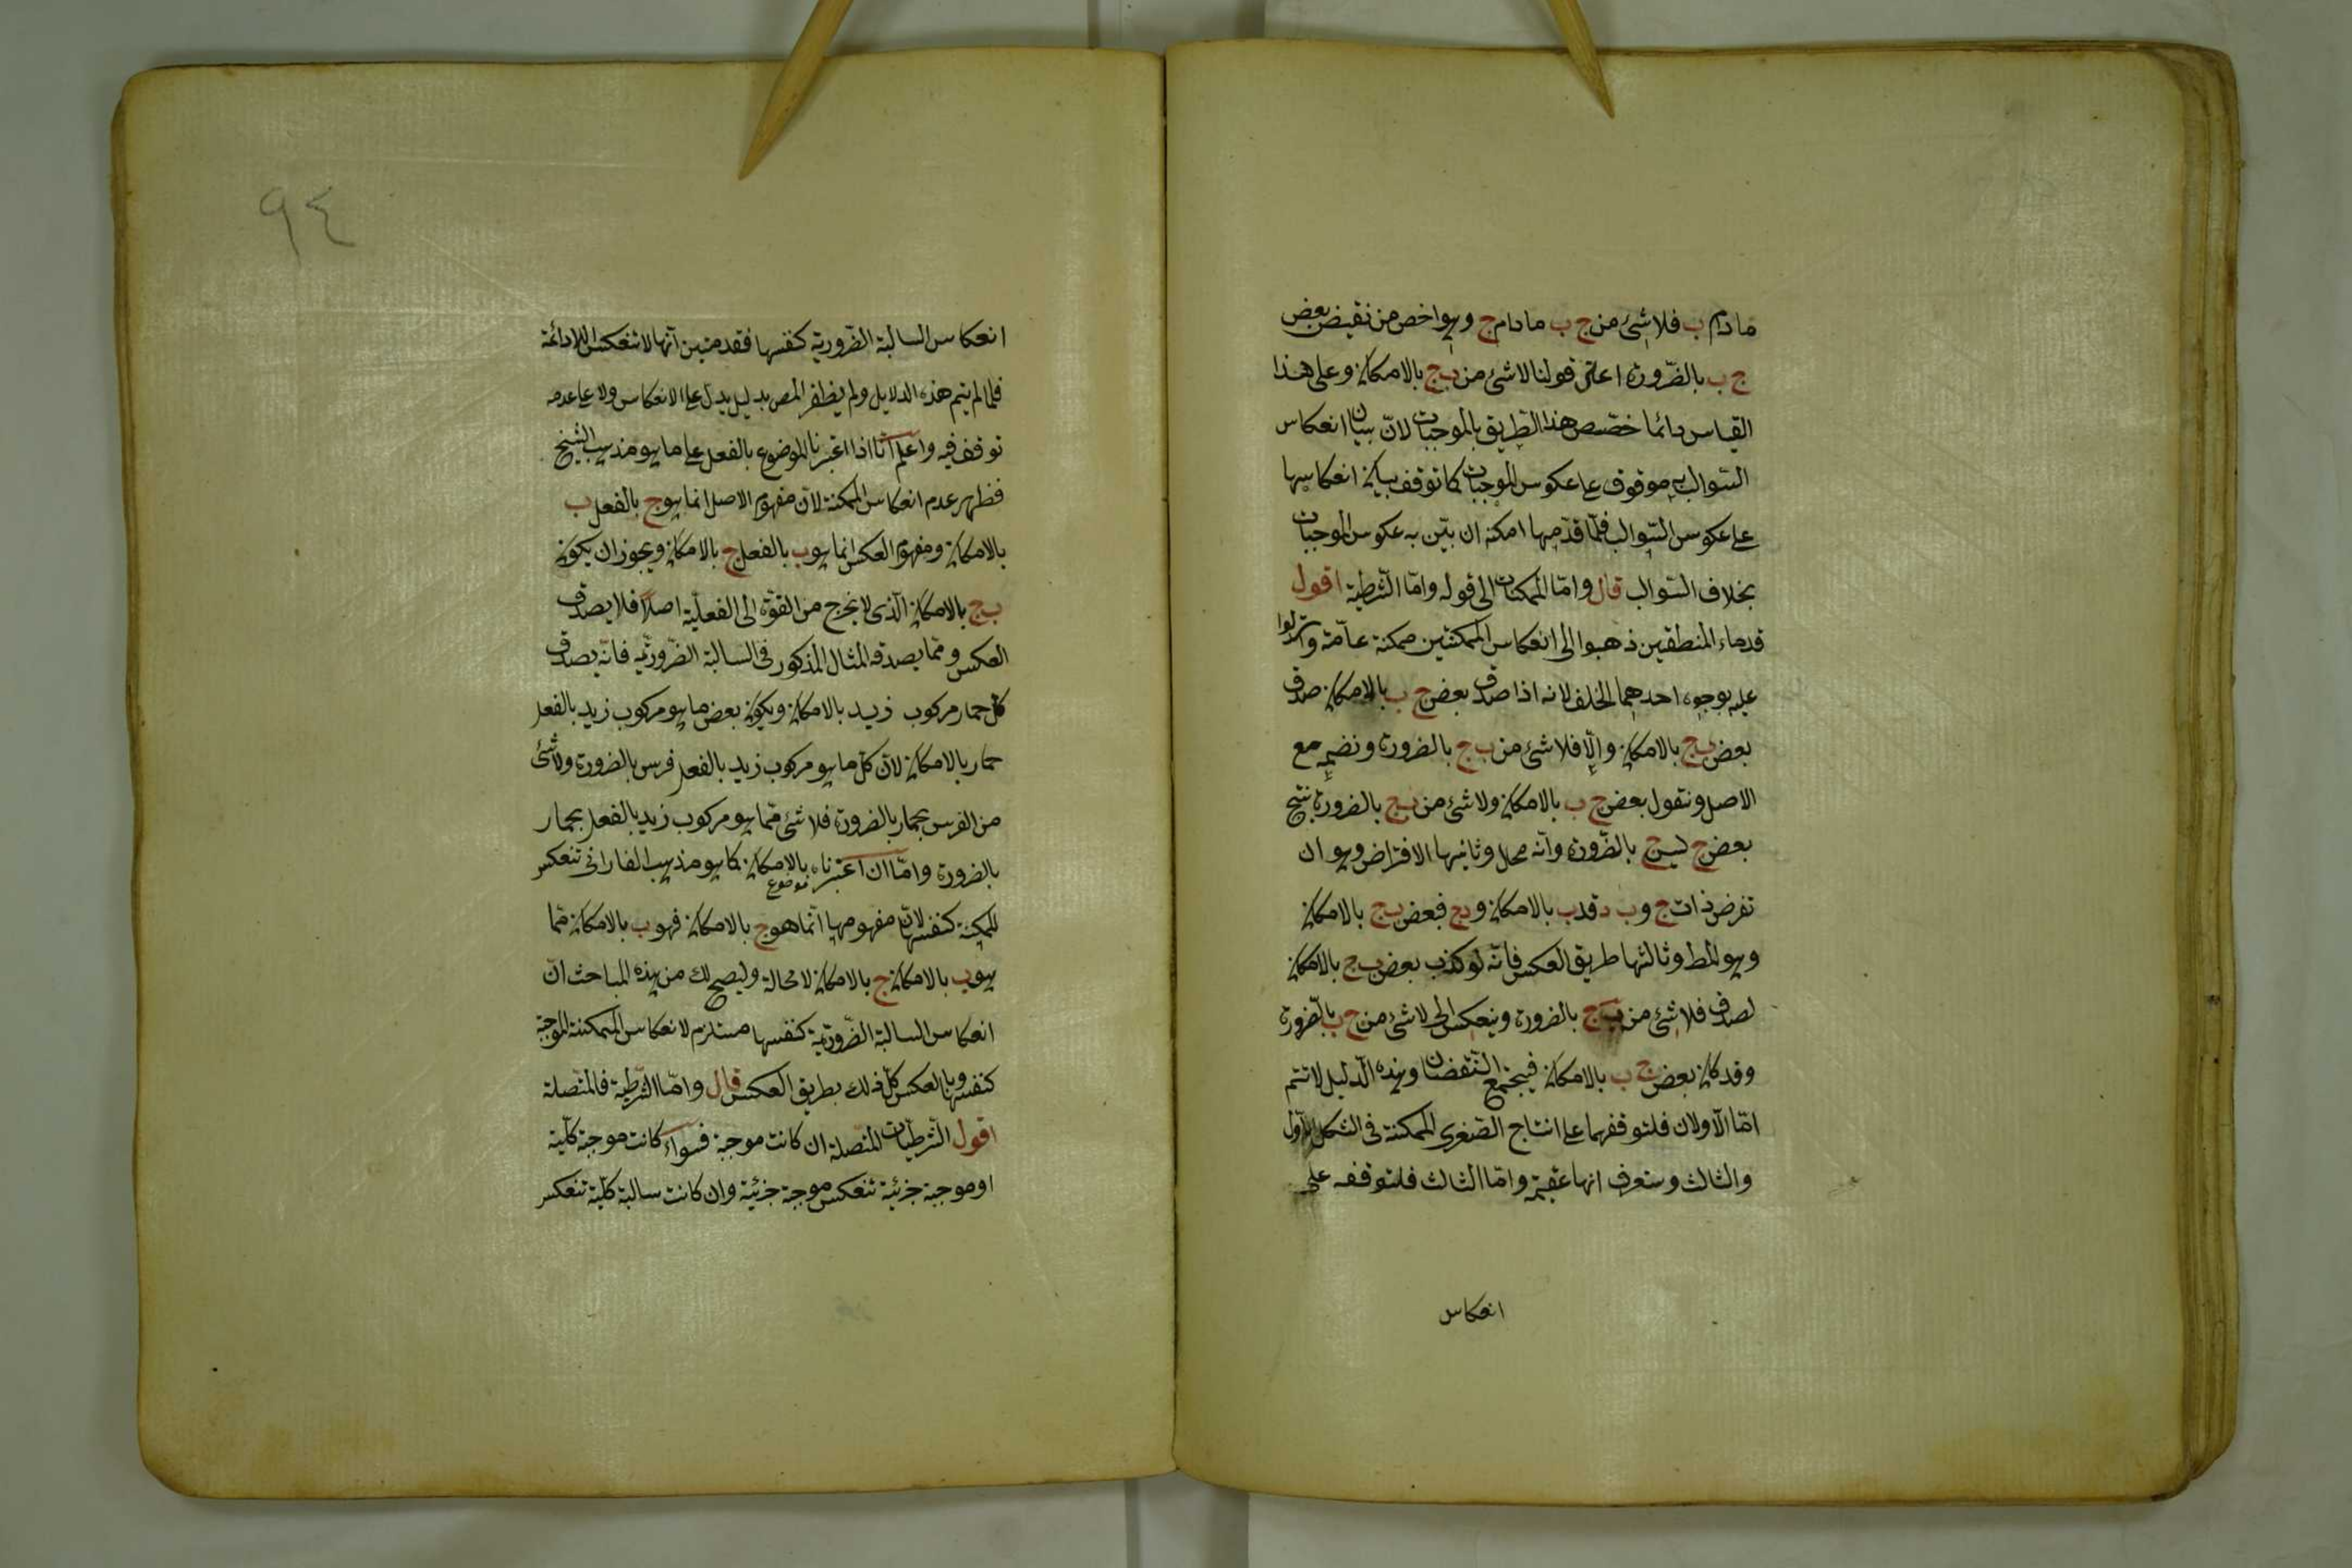 مادام ب فلا شئ من ج ب مادام ج وهو اخص من نقيض بعض
ج ب بالضرورة اعنى قولنا لا شئ من ب ج بالامكان وعلى هذا
القياس دائما خصّص هذا الطريق بالموجبات لانّ بيان انعكاس
السّوالب به موقوف على عكوس الموجبات كما توقف بيان انعكاسها
على عكوس السّوالب فلمّا قدّمها امكنه ان بيّن به عكوس الموجبات
بخلاف السّوالب قال وامّا الممكنات الى قوله وامّا الشرطية اقول
قدماء المنطقين ذهبوا الى انعكاس الممكنتين ممكنة عامّة واستدلوا
عليه بوجوه احدهما الخلف لانه اذا صدق بعض ج ب بالامكان صدق
بعض ب ج بالامكان والّا فلا شئ من ب ج بالضرورة ونضمه مع
الاصل ونقول بعض ج ب بالامكان ولا شئ من ب ج بالضرورة ينتج
بعض ج ليس ج بالضّرورة وانّه محال وثانيها الافتراض وهو ان
نفرض ذات ج وب د فدب بالامكان ودج فبعض ب ج بالامكان
وهو المط وثالثها طريق العكس فانّه لو كذب بعض ب ج بالامكان
لصدق فلا شئ من ب ج بالضرورة وينعكس الى لا شئ من ج ب بالضرورة
وقد كان بعض ج ب بالامكان فيجتمع النقيضان وهذه الدليل لا تتم
امّا الاولان فلتوقفهما على انتاج الصّغرى الممكنة فى الشكل الاول
والثالث وستعرف انها عقيمة وامّا الثالث فلتوقفه على
انعكاس
٩٤
انعكاس السالبة الضّرورية كنفسها فقد تبين انّها لا تنعكس الا دائمة
فلما لم يتم هذه الدلايل ولم يظفر المص بدليل يدل على الانعكاس ولا على عدمه
توقف فيه واعلم انّا اذا اعتبرنا الموضوع بالفعل على ما هو مذهب الشيخ
فظهر عدم انعكاس الممكنة لانّ مفهوم الاصل انما هو ج بالفعل ب
بالامكان ومفهوم العكس انما هو ب بالفعل ج بالامكان ويجوز ان يكون
ب ج بالامكان الّذى لا يخرج من القوّة الى الفعليّة اصلا فلا يصدق
العكس وممّا يصدقه المثال المذكور فى السالبة الضّروريّه فانّه يصدق
كل حمار مركوب زيد بالامكان ويكون بعض ما هو مركوب زيد بالفعل
حمار بالامكان لانّ كلّ ما هو مركوب زيد بالفعل فرس بالضرورة ولا شئ
من الفرس بحمار بالضرورة فلا شئ ممّا هو مركوب زيد بالفعل بحمار
بالضرورة وامّا ان اعتبرناه بالامكان كما هو مذهب الفارابى تنعكس
موضوع
الممكنة كنفسها لانّ مفهومها انّما هو ج بالامكان فهو ب بالامكان فما
هو ب بالامكان ج بالامكان لا محالة وليصح لك من هذه المباحث انّ
انعكاس السالبة الضّروريّة كنفسها مستلزم لانعكاس الممكنة الموجبة
كنفسها وبالعكس كل ذلك بطريق العكس قال وامّا الشرطية فالمتّصلة
اقول الشّرطيات المتّصلة ان كانت موجبة فسواء كانت موجبة كلّية
او موجبة جزئية تنعكس موجبة جزئية وان كانت سالبة كلّية تنعكس